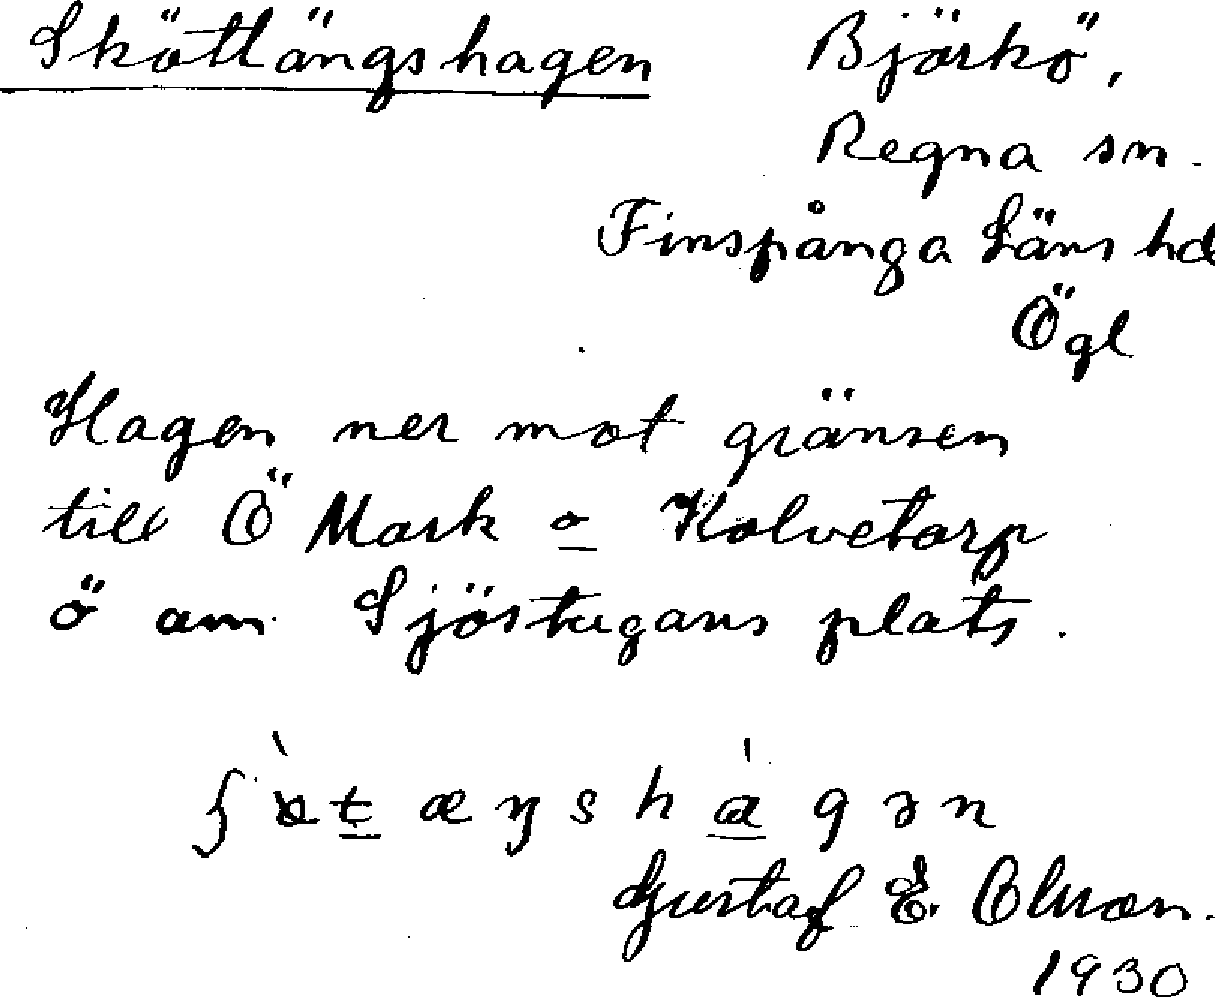 Sköttlängshagen Björkö,
Regna sn.
Finspånga Läns hd
Ögl
Hagen ner mot gränsen
till Ö Mark o Kolvetorp
ö om Sjöstugans plats.
Gustaf E. Olsson.
1930